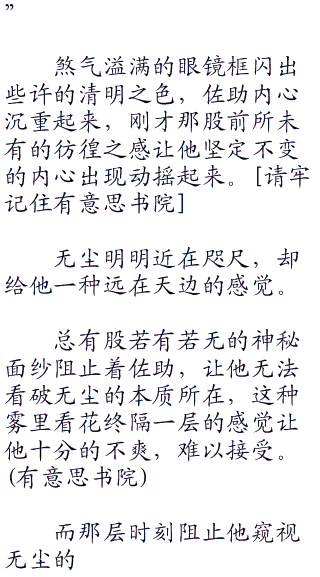 ”
煞气溢满的眼镜框闪出
些许的清明之色，佐助内心
沉重起来，刚才那股前所未
有的彷徨之感让他坚定不变
的内心出现动摇起来。[请牢
记住有意思书院]
无尘明明近在咫尺，却
给他一种远在天边的感觉。
总有股若有若无的神秘
面纱阻止着佐助，让他无法
看破无尘的本质所在，这种
雾里看花终隔一层的感觉让
他十分的不爽，难以接受。
(有意思书院)
而那层时刻阻止他窥视
无尘的